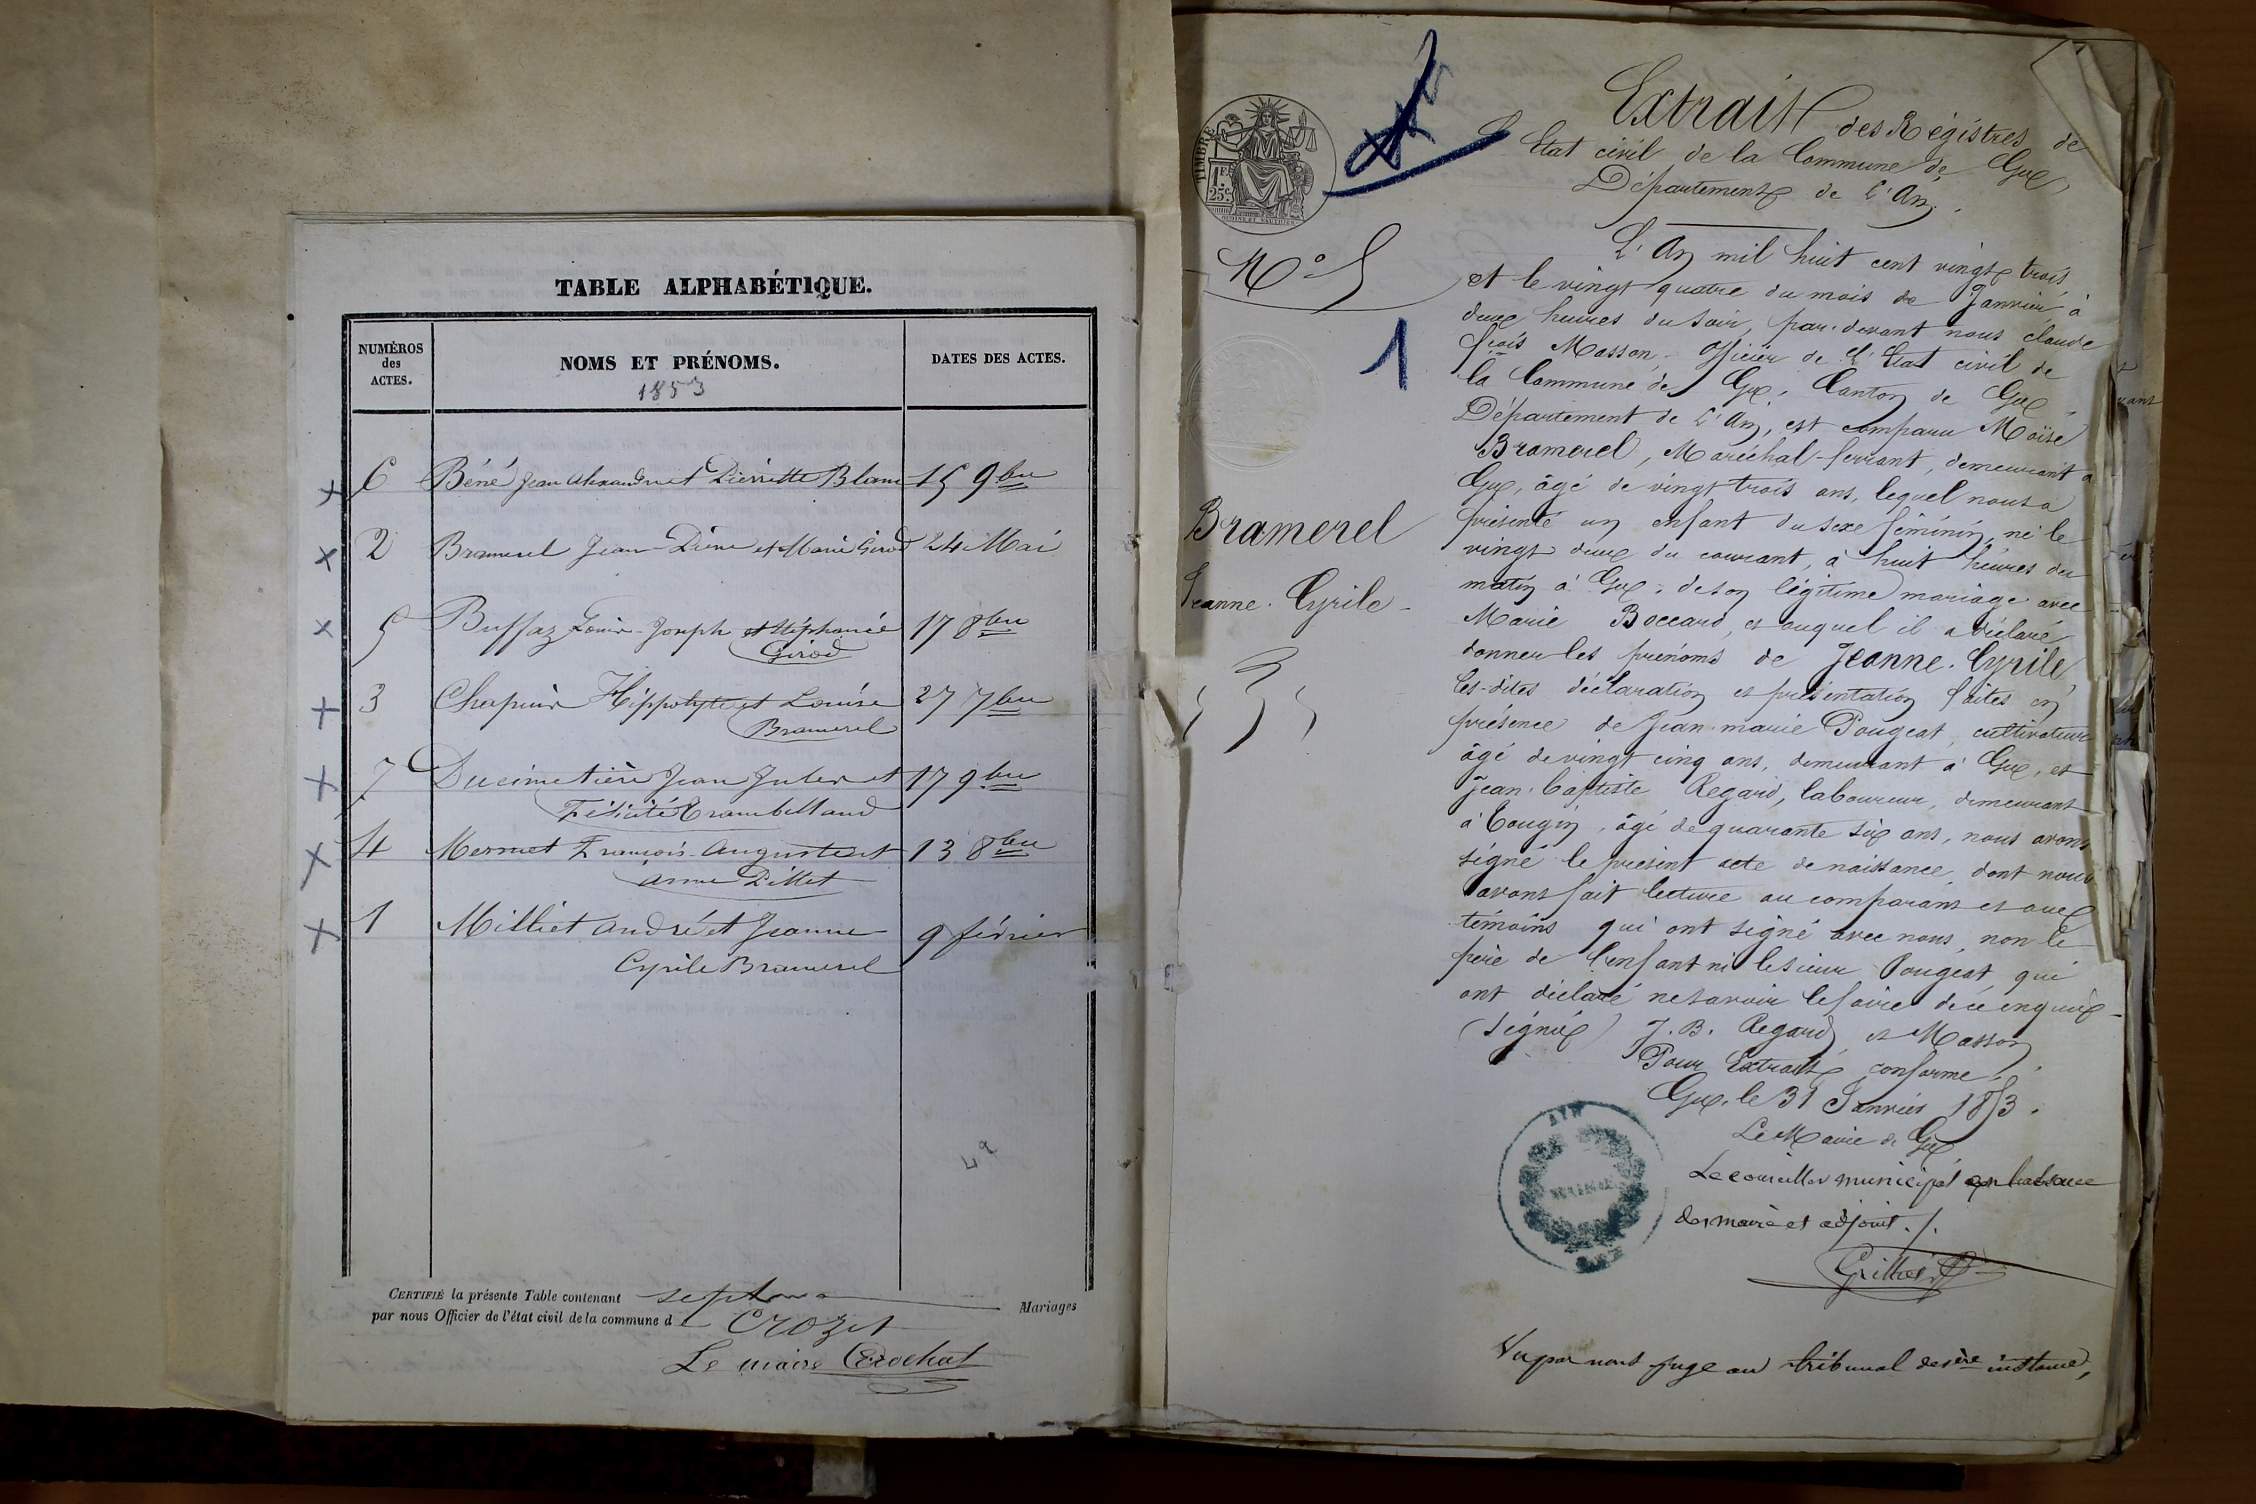 TABLE ALPHABÉTIQUE.
NUMÉROS
des
ACTES.
NOMS ET PRÉNOMS.
1853
DATES DES ACTES.
6 Béné Jean Alexandre et Pierrette Blanc 15 9bre
2 Bramerel Jean-Pierre et Marie Girod 24 Mai
5 Buffaz Louis-Joseph et Stéphanie 17 8bre
Girod
3 Chapuis Hippolyte et Louise 27 7bre
Bramerel
7 Ducimetière Jean Jules et 17 9bre
Félicité
4 Mermet François-Auguste et 13 8bre
Anne Pillet
1 Milliet André et Jeanne 9 février
Cyrile Bramerel
CERTIFIÉ la présente Table contenant sept Mariages
par nous Officier de l'état civil de la commune d e Crozet
Le maire Crochat
TIMBRE
1F.
25c.
Extrait des Régistres de
l'Etat civil de la Commune de Gex,
Département de l'Ain.
No 5
1
L'An mil huit cent vingt trois
et le vingt quatre du mois de Janvier à
deux heures du soir, par-devant nous claude
frçois Masson, Officier de l'Etat civil de
la Commune de Gex, Canton de Gex,
Département de l'Ain, est comparu Moïse
Bramerel, Maréchal-ferrant, demeurant à
Gex, âgé de vingt trois ans, lequel nous a
présenté un enfant du sexe féminin, né le
vingt deux du courant, à huit heures du
matin à Gex, de son légitime mariage avec
Marie Boccard, et auquel il a déclaré
donner les prénoms de Jeanne-Cyrile,
les-dites déclaration et présentation faites en
présence de Jean-marie Pougeat, cultivateur
âgé de vingt cinq ans, demeurant à Gex, et
Jean-Baptiste Regard, laboureur, demeurant
à Tougin, âgé de quarante six ans, nous avons
signé le présent acte de naissance, dont nous
avons fait lecture au comparant et aux
témoins qui ont signé avec nous, non le
père de l'enfant ni le sieur Pougeat, qui
ont déclaré ne savoir le faire de ce enquis
(signés) J. B. Regard et Masson
Pour Extrait conforme,
Gex, le 31 Janvier 1853.
Le Maire de Gex
Le conseiller municipal en l'absence
des maire et adjoint.
Bramerel
Jeanne-Cyrile
AIN
MAIRIE
GEX
Vu par nous juge au tribunal de 1ère instance,